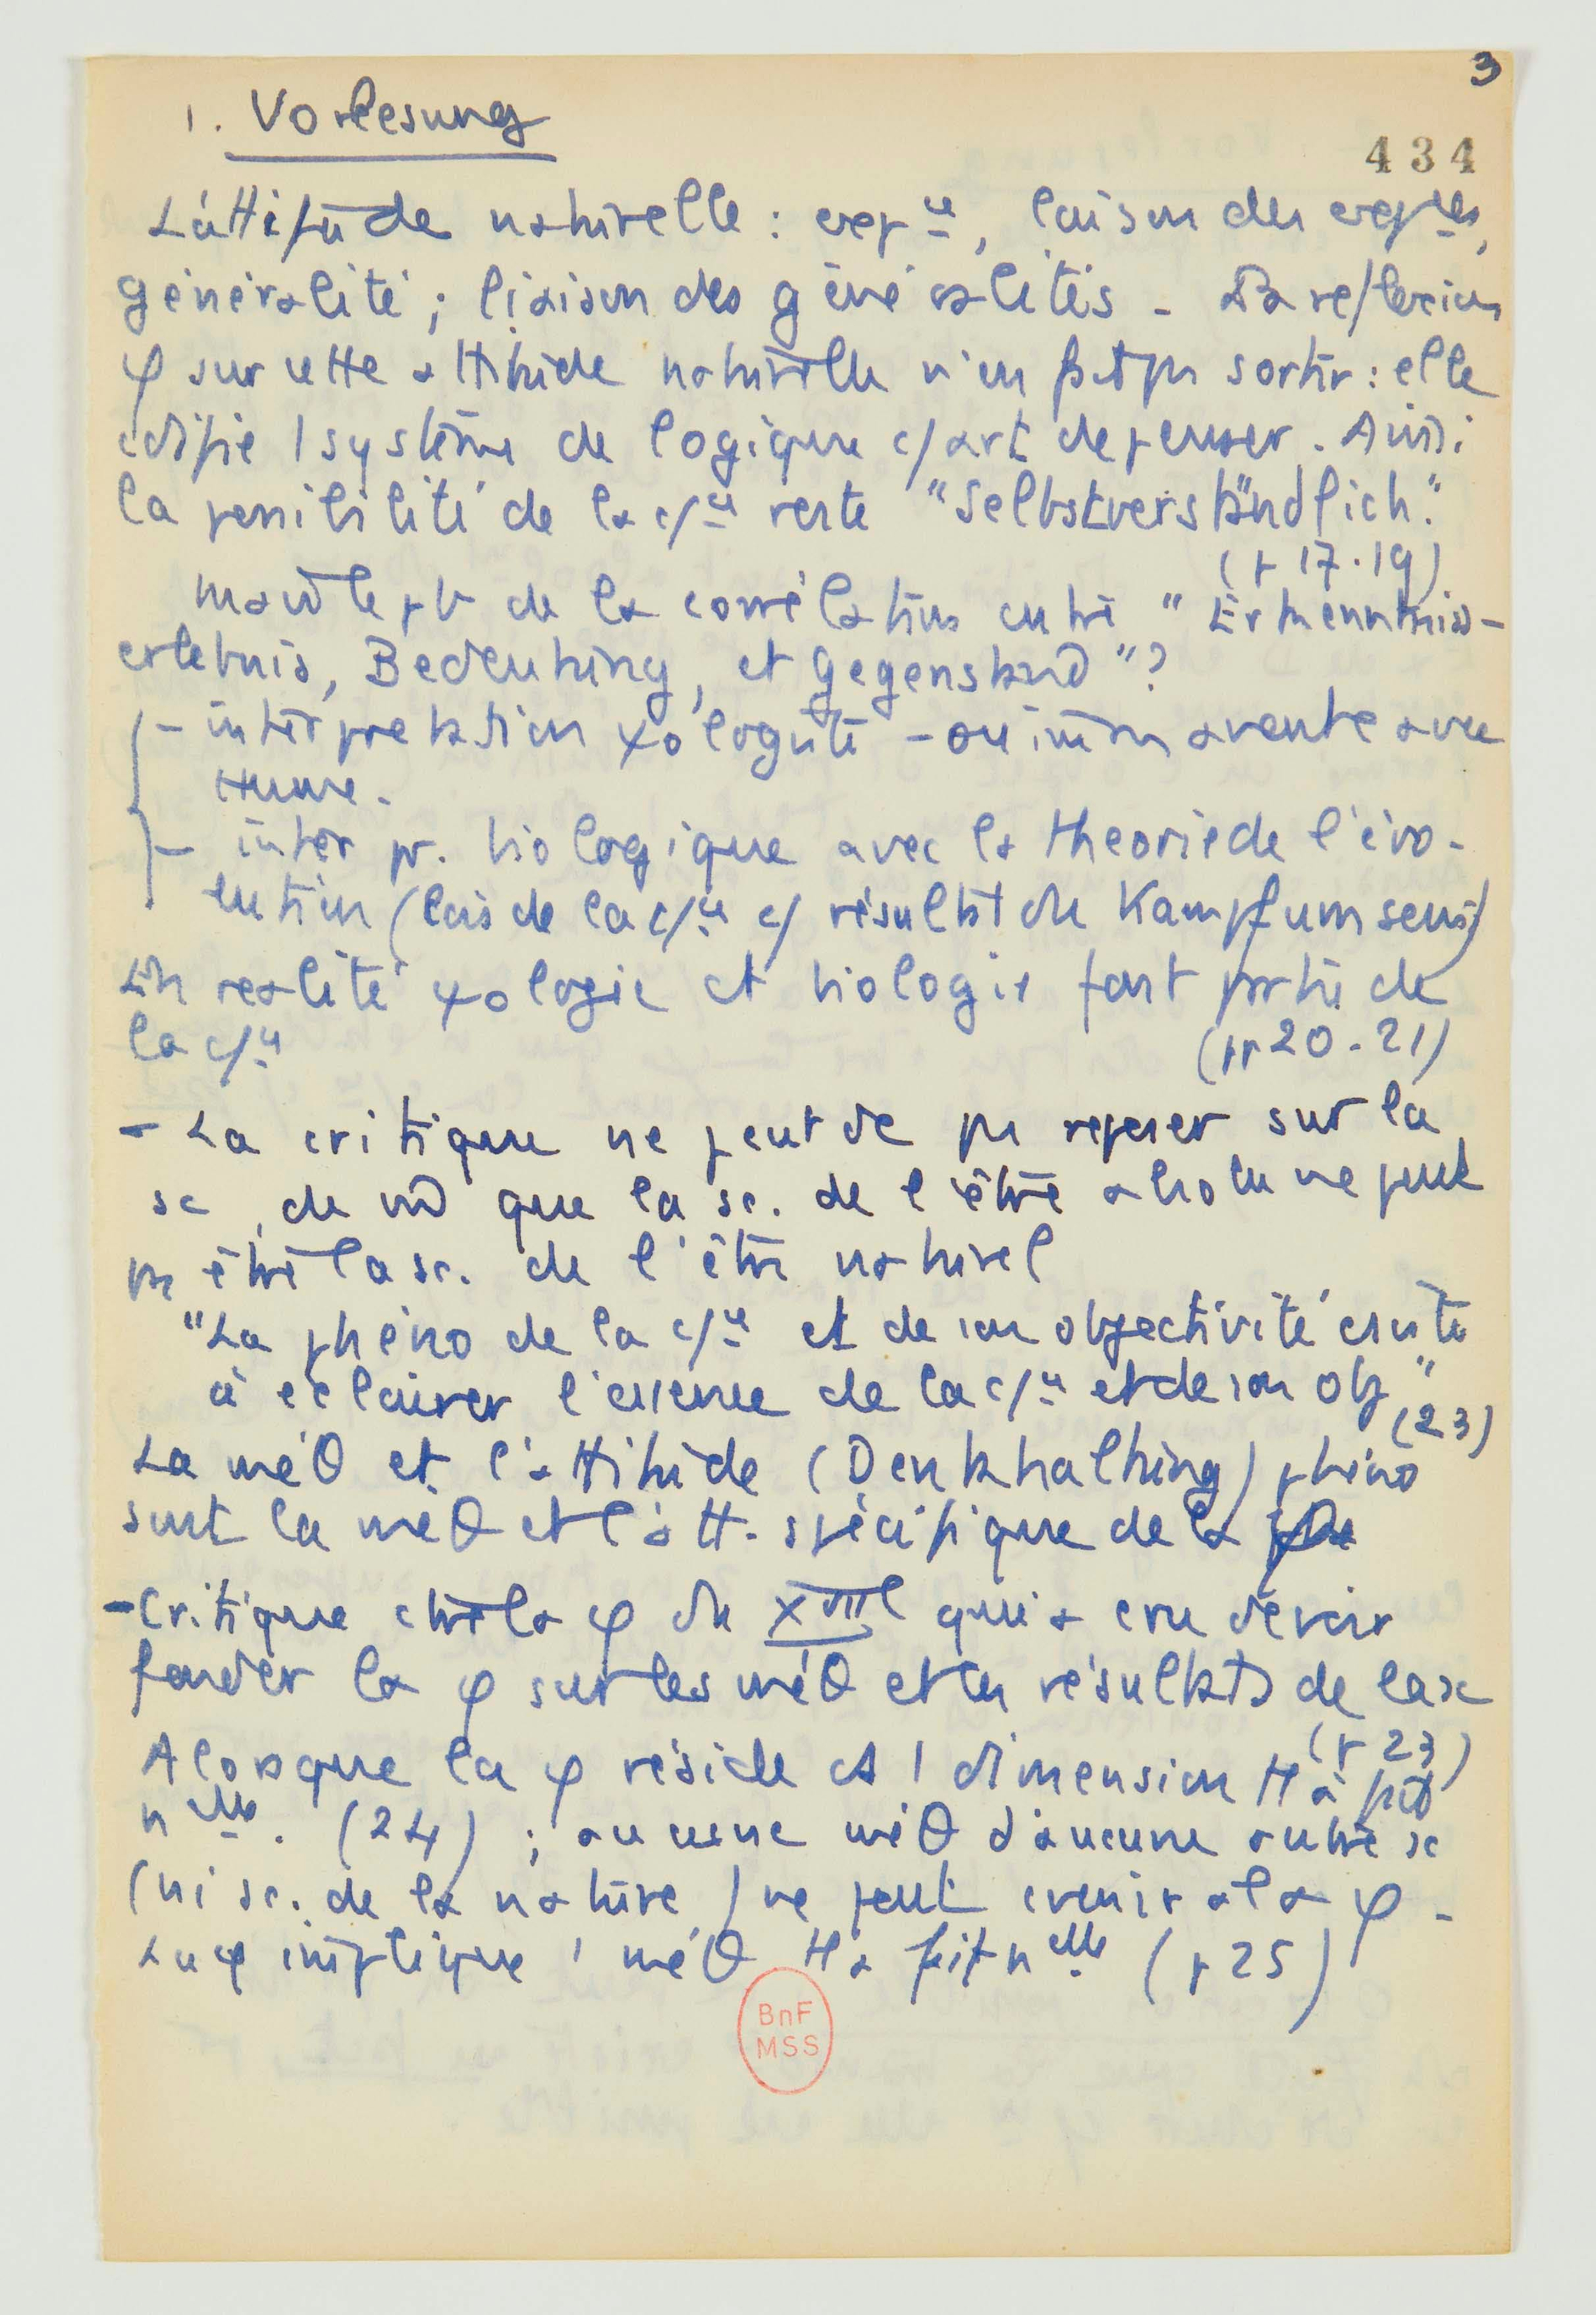 3
1. Vorlesung
434
L'attitude naturelle : exp ce, liaison des exp ces,
généralité ; liaison des généralités - La reflexion
φ sur cette attitude naturelle n'en fait pas sortir : elle
edifie 1 système de logique c/ art de penser. Ainsi
la possibilité de la c/ce reste "Selbstverständlich".
(p 17.19)
Mais le pb de la corrélation entre "Erkenntniss-
erlebnis, Bedeutung, et Gegenstand" ?
- interprétation ψologiste - ou immanente avec
Hume.
- interpr. biologique avec la theorie de l'évo-
lution (lois de la c/ce c/ résultat du Kampf ums
En realité ψologie et biologie font partie de
la c/ce
(pp 20-21)
- La critique ne peut dc pas reposer sur la
sc, de m^ que la sc. de l'être absolu ne peut
pas être la sc. de l'être naturel
"La phéno de la c/ce et de son objectivité csiste
à eclairer l'essence de la c/ce et de son obj"
(23)
La méθ et l'attitude (Denkhaltung) phéno
sont la méθ et l'att. spécifique de la
- Critique ctre la φ du XVIIe qui a cru devoir
fonder la φ sur les méθ et les résultats de la sc
(p 23)
Alors que la φ réside ds 1 dimension tt à fait
nelle. (24) ; aucune méθ d'aucune autre sc
(ni sc. de la nature) ne peut cvenir a la φ -
La φ implique 1 méθ tt a fait nelle (p 25)
BnF
MSS